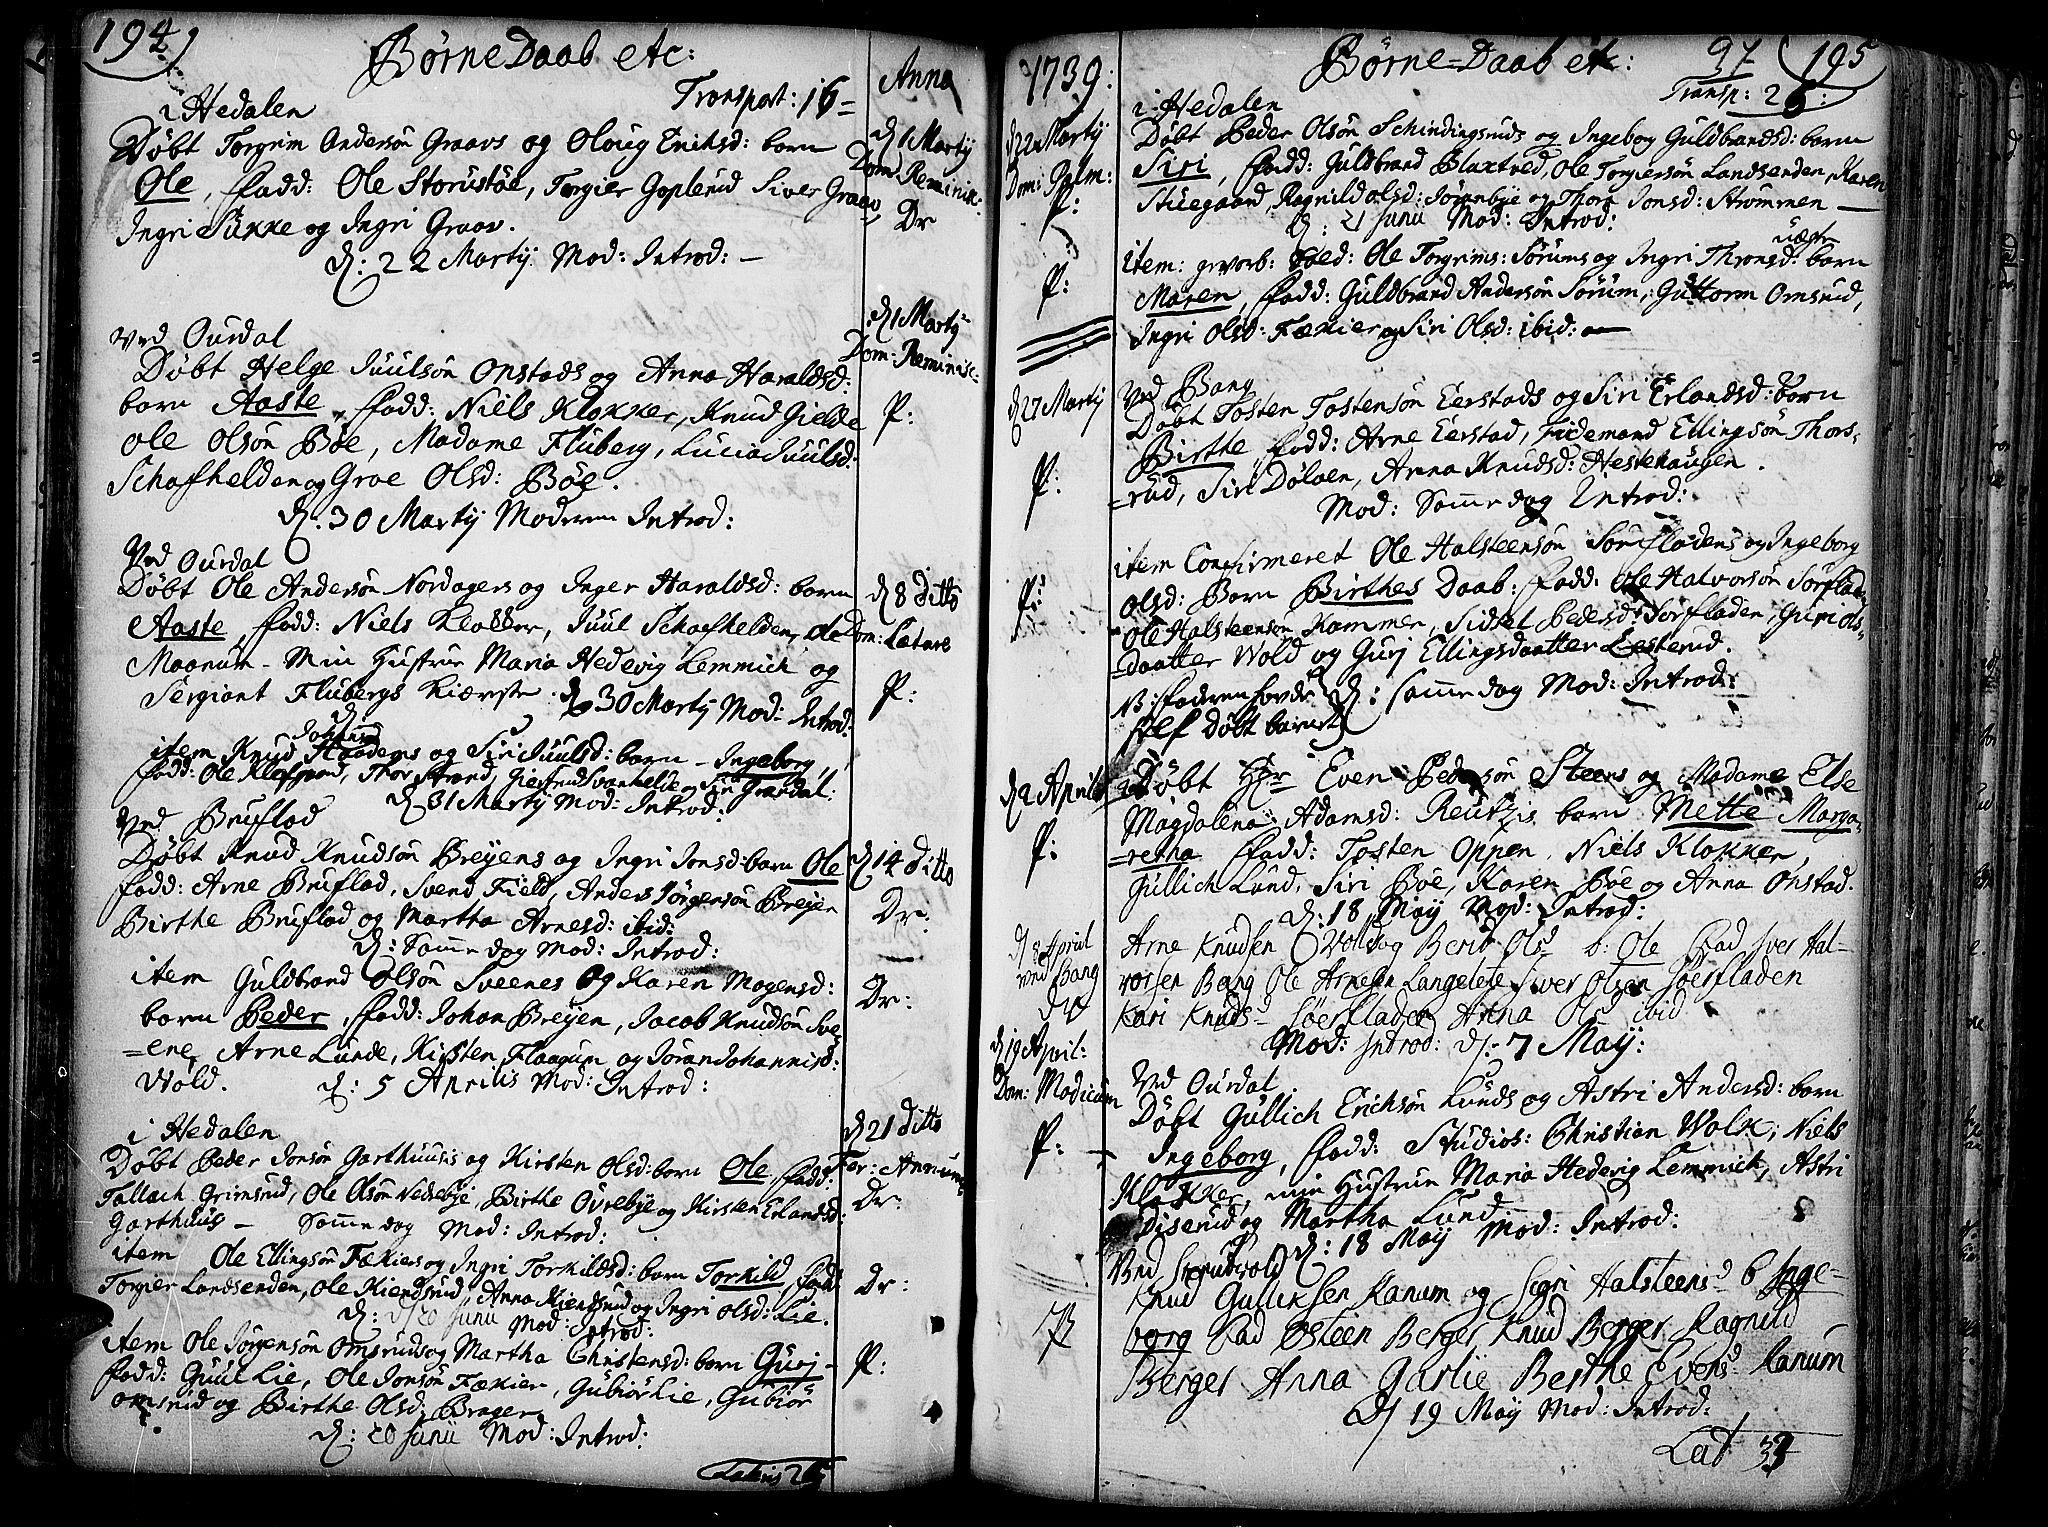 194
Børne Daab etc:
Anna
i Hedalen
Transport: 16
Døbt Torgrim Andersøn Graavs og Oloug Eriksd: barn
d 1 Martij
Dom Reminisc:
Ole, fadd: Ole Storustøe, Torgier Goplerud Siver Graav,
Dr
Ingri Sukke og Ingri Graav.
D: 22 Martij Mod: Introd: —
Ved Ourdal
d 1 Martij
Dom: Reminisc:
Døbt Helge Juulsøn Onstads og Anna Haraldsd:
barn Aaste, fadd: Niels Klokker, Knud Gielde
P:
Ole Olsøn Bøe, Madame Fluberg, Lucia Juulsd:
Schafhelden og Groe Olsd: Bøe.
D: 30 Martij Moderen Introd:
Ved Ourdal
Døbt Ole Andersøn Nordagers og Inger Haraldsd: barn
d 8 Ditto
Aaste, fadd: Niels Klokker, Juul Schafhelden, Ole
Dom: Lætare
Maanum - Min Hustrue Maria Hedevig Lemmich og
P:
Sergiant Flubergs Kiæreste. d 30 Martij Mod: Introd:
item Knud Johansø og Siri Juulsd: barn - Ingeborg,
fadd: Ole Klefgaard, Thor Strand, Giertrud Svanhelde og Siri Grandal:
D 31 Martij Mod: Introd:
Ved Bruflad
Døbt Knud Knudsøn Breyens og Ingri Jonsd: barn Ole
d 14 Ditto
fadd: Arne Bruflad, Svend Field, Anders Jørgensøn Breyen
Dr:
Birthe Bruflad og Martha Arnesd: ibid:
D: Samme dag Mod: Introd:
item Guldbrand Olsøn Sveenes og Karen Mogensd:
Dr:
barn Peder, fadd: Johan Breyen, Jacob Knudsøn Sve
=ene, Arne Lunde, Kirsten Flaagum og Jøran Johannisd:
Wold. D: 5 Aprilis Mod: Introd:
i Hedalen
d 21 Ditto
Døbt Peder Jonsøn Garthuusis og Kirsten Olsd: barn Ole, fadd:
Fer: Annunc:
Tallach Grimsrud, Ole Olsøn Nedrebye, Birthe Øvrebye og Kirsten Erlandsd:
Dr:
Garthuus — Samme dag Mod: Introd:
item Ole Ellingsøn Fækiers og Ingri Torkildsd: barn Torkild, fadd:
Dr:
Torgier Landsenden, Ole Kiendsrud, Anna Kiendsrud og Ingri Olsd: Lie.
D: 20 Junii Mod: Introd:
item Ole Jørgensøn Omsruds og Martha Christensd: barn Gurj -
P:
fadd: Guul Lie, Ole Jonsøn Fækier, Gubiør Lie, Gubiør
Omsrud og Birthe Olsd: Brager
D: 20 Junii Mod: Introd:
Latus 26
1739:
Børne=Daab etc:
97
195
Transp: 26:
i Hedalen
d 22 Martij
Dom: Palm:
P:
Døbt Peder Olsøn Schindingsruds og Ingeborg Guldbrandsd: barn
Siri, fadd: Guldbrand Bluxtved, Ole Torgiersøn Landsenden, Karen
Stuegaard, Ragnild Olsd: Jørenbye og Thore Jonsd: Strømmen —
D: 21 Junii Mod: Introd:
P:
uægte
item: Ole Torgrims: Sørums og Ingri Thronsd: barn
Maren, fadd: Guldbrand Andersøn Sørum, Guttorm Omsrud,
Ingri Olsd: Fækier og Siri Olsd: ibid: —
Ved Bang
d 27 Martij
Døbt Tosten Tostensøn Eerstads og Siri Erlandsd: barn
Birthe, fadd: Arne Eerstad, Tidemand Ellingsøn Thors-
P:
=rud, Siri Døløen, Anna Knudsd: Hestehaugen.
Mod: Samme dag Introd:
item Confirmeret Ole Halsteensøn Sørfladens og Ingeborg
P:
Olsd: Barn Birthes Daab: fadd: Ole Halvorsøn Sørfladen
Ole Halsteensøn Kammen, Sidsel Pedersd: Sørfladen, Guri Ols-
=daatter Wold og Gurj Ellingsdaatter Lesterud.
NB: faderen havde self døbt barnet D: Samme dag Mod: Introd:
d 2 Aprilis
Døbt Hr Even Pedersøn Steens og Madame Else
P:
Magdalena Adamsd: Reutzis barn Mette Marga-
=retha fadd: Tosten Oppen, Niels Klokker,
Gullich Lund, Siri Bøe, Karen Bøe og Anna Onstad.
D: 18 Maij Mod: Introd:
d 8 Apriil
ved Bang
Arne Knudsen Volds og Berit Olsd b: Ole Fad Iver Hal-
vorsen Bang Ole Arnesen Langelete Siver Olsen Søerfladen
Kari Knudsd Søerfladen Anna Olsd ibid
Mod: Introd: D: 7 Maij:
d 19 April:
Dom: Modicum
Ved Ourdal
Døbt Gullich Erichsøn Lunds og Astri Andersd: barn
P:
Ingeborg, fadd: Studios: Christian Wolk, Niels
Klokker, min Hustrue Maria Hedevig Lemmich, Astri
Diserud og Martha Lund
D: 18 Maij Mod: Introd:
Knud Gulliksen Ranum og Segri Halsteensd b Inge-
borg Fad Østeen Berger Knud Berger Ragnild
Berger Anna Garlie Berthe Evensd Ranum
D 19 Maij Mod: Introd:
Lat